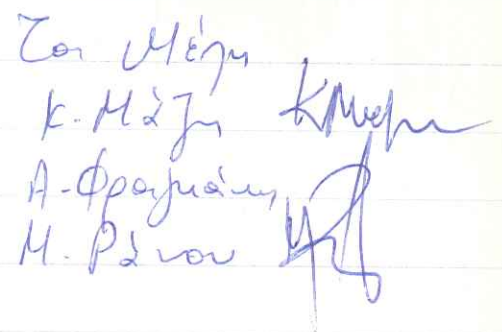 Τα Μέλη
Κ. Μάζη
Α. Φραγκάκης
Μ. Ράπου